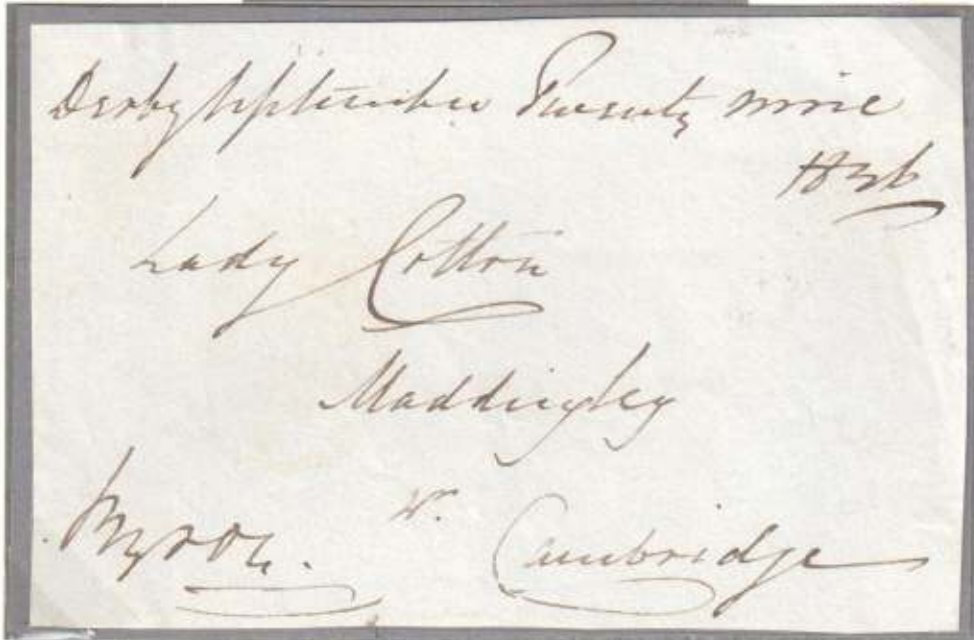 Derby September Twenty nine
1836
Lady Cotton
Maddingley
Byron. Nr. Cambridge